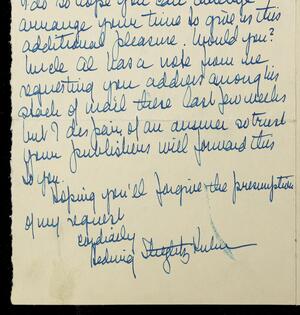 do hope you can
arrange your time to give us this
additional pleasure. Would you?
Uncle Al has a note from me
requesting you address among his
stack of mail these last few weeks
but I despair of an answer so trust
your publishers will forward this
to you.
Hoping you'll forgive the presumption
of my request
Cordially
Hedwig Stieglitz Kuhn